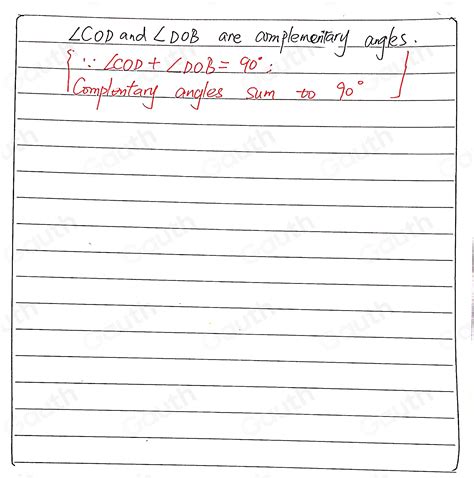 ∠COD and ∠DOB are complementary angles.
{∵ ∠COD + ∠DOB = 90°;
Complentary angles sum to 90°}
Gauth